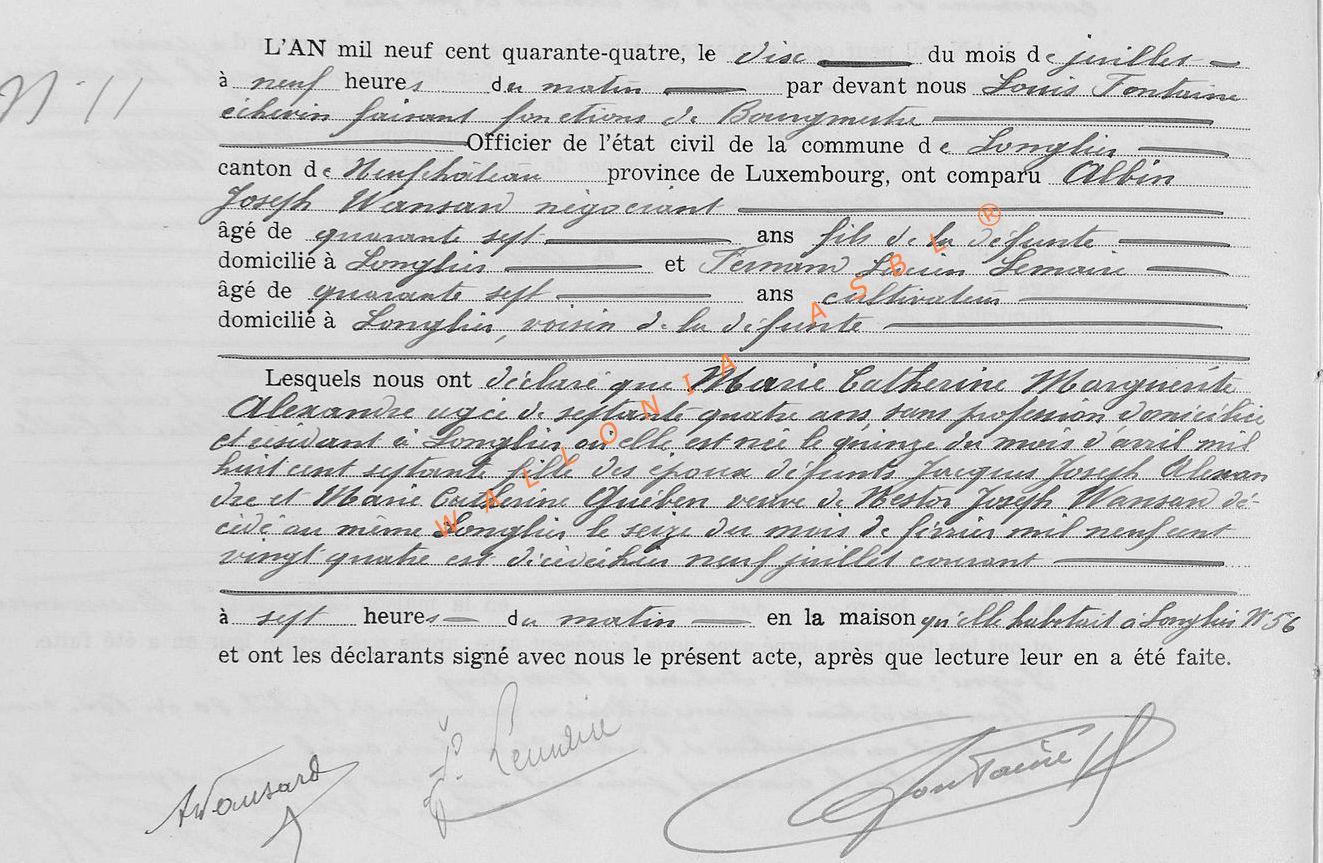 N° 11
L'AN mil neuf cent quarante-quatre, le dix du mois de juillet
à neuf heures du matin par devant nous Louis Fontaine
échevin faisant fonctions de Bourgmestre
Officier de l'état civil de la commune de Longlier
canton de Neufchâteau province de Luxembourg, ont comparu Albin
Joseph Wansard négociant
âgé de quarante sept ans fils de la défunte
domicilié à Longlier et Fernand Lucien Lemaire
âgé de quarante sept ans cultivateur
domicilié à Longlier, voisin de la défunte
Lesquels nous ont déclaré que Marie Catherine Marguerite
Alexandre agée de septante quatre ans, sans profession domiciliée
et résidant à Longlier où elle est née le quinze du mois d'avril mil
huit cent septante fille des époux défunts Jacques Joseph Alexan
dre et Marie Catherine Gueben veuve de Nestor Joseph Wansard dé-
cédé au même Longlier le seize du mois de février mil neuf cent
vingt quatre est décédée hier neuf juillet courant
à sept heures du matin en la maison qu'elle habitait à Longlier N° 56
et ont les déclarants signé avec nous le présent acte, après que lecture leur en a été faite.
AWansard
Lemaire
Fontaine
WALLONIA ASBL ®